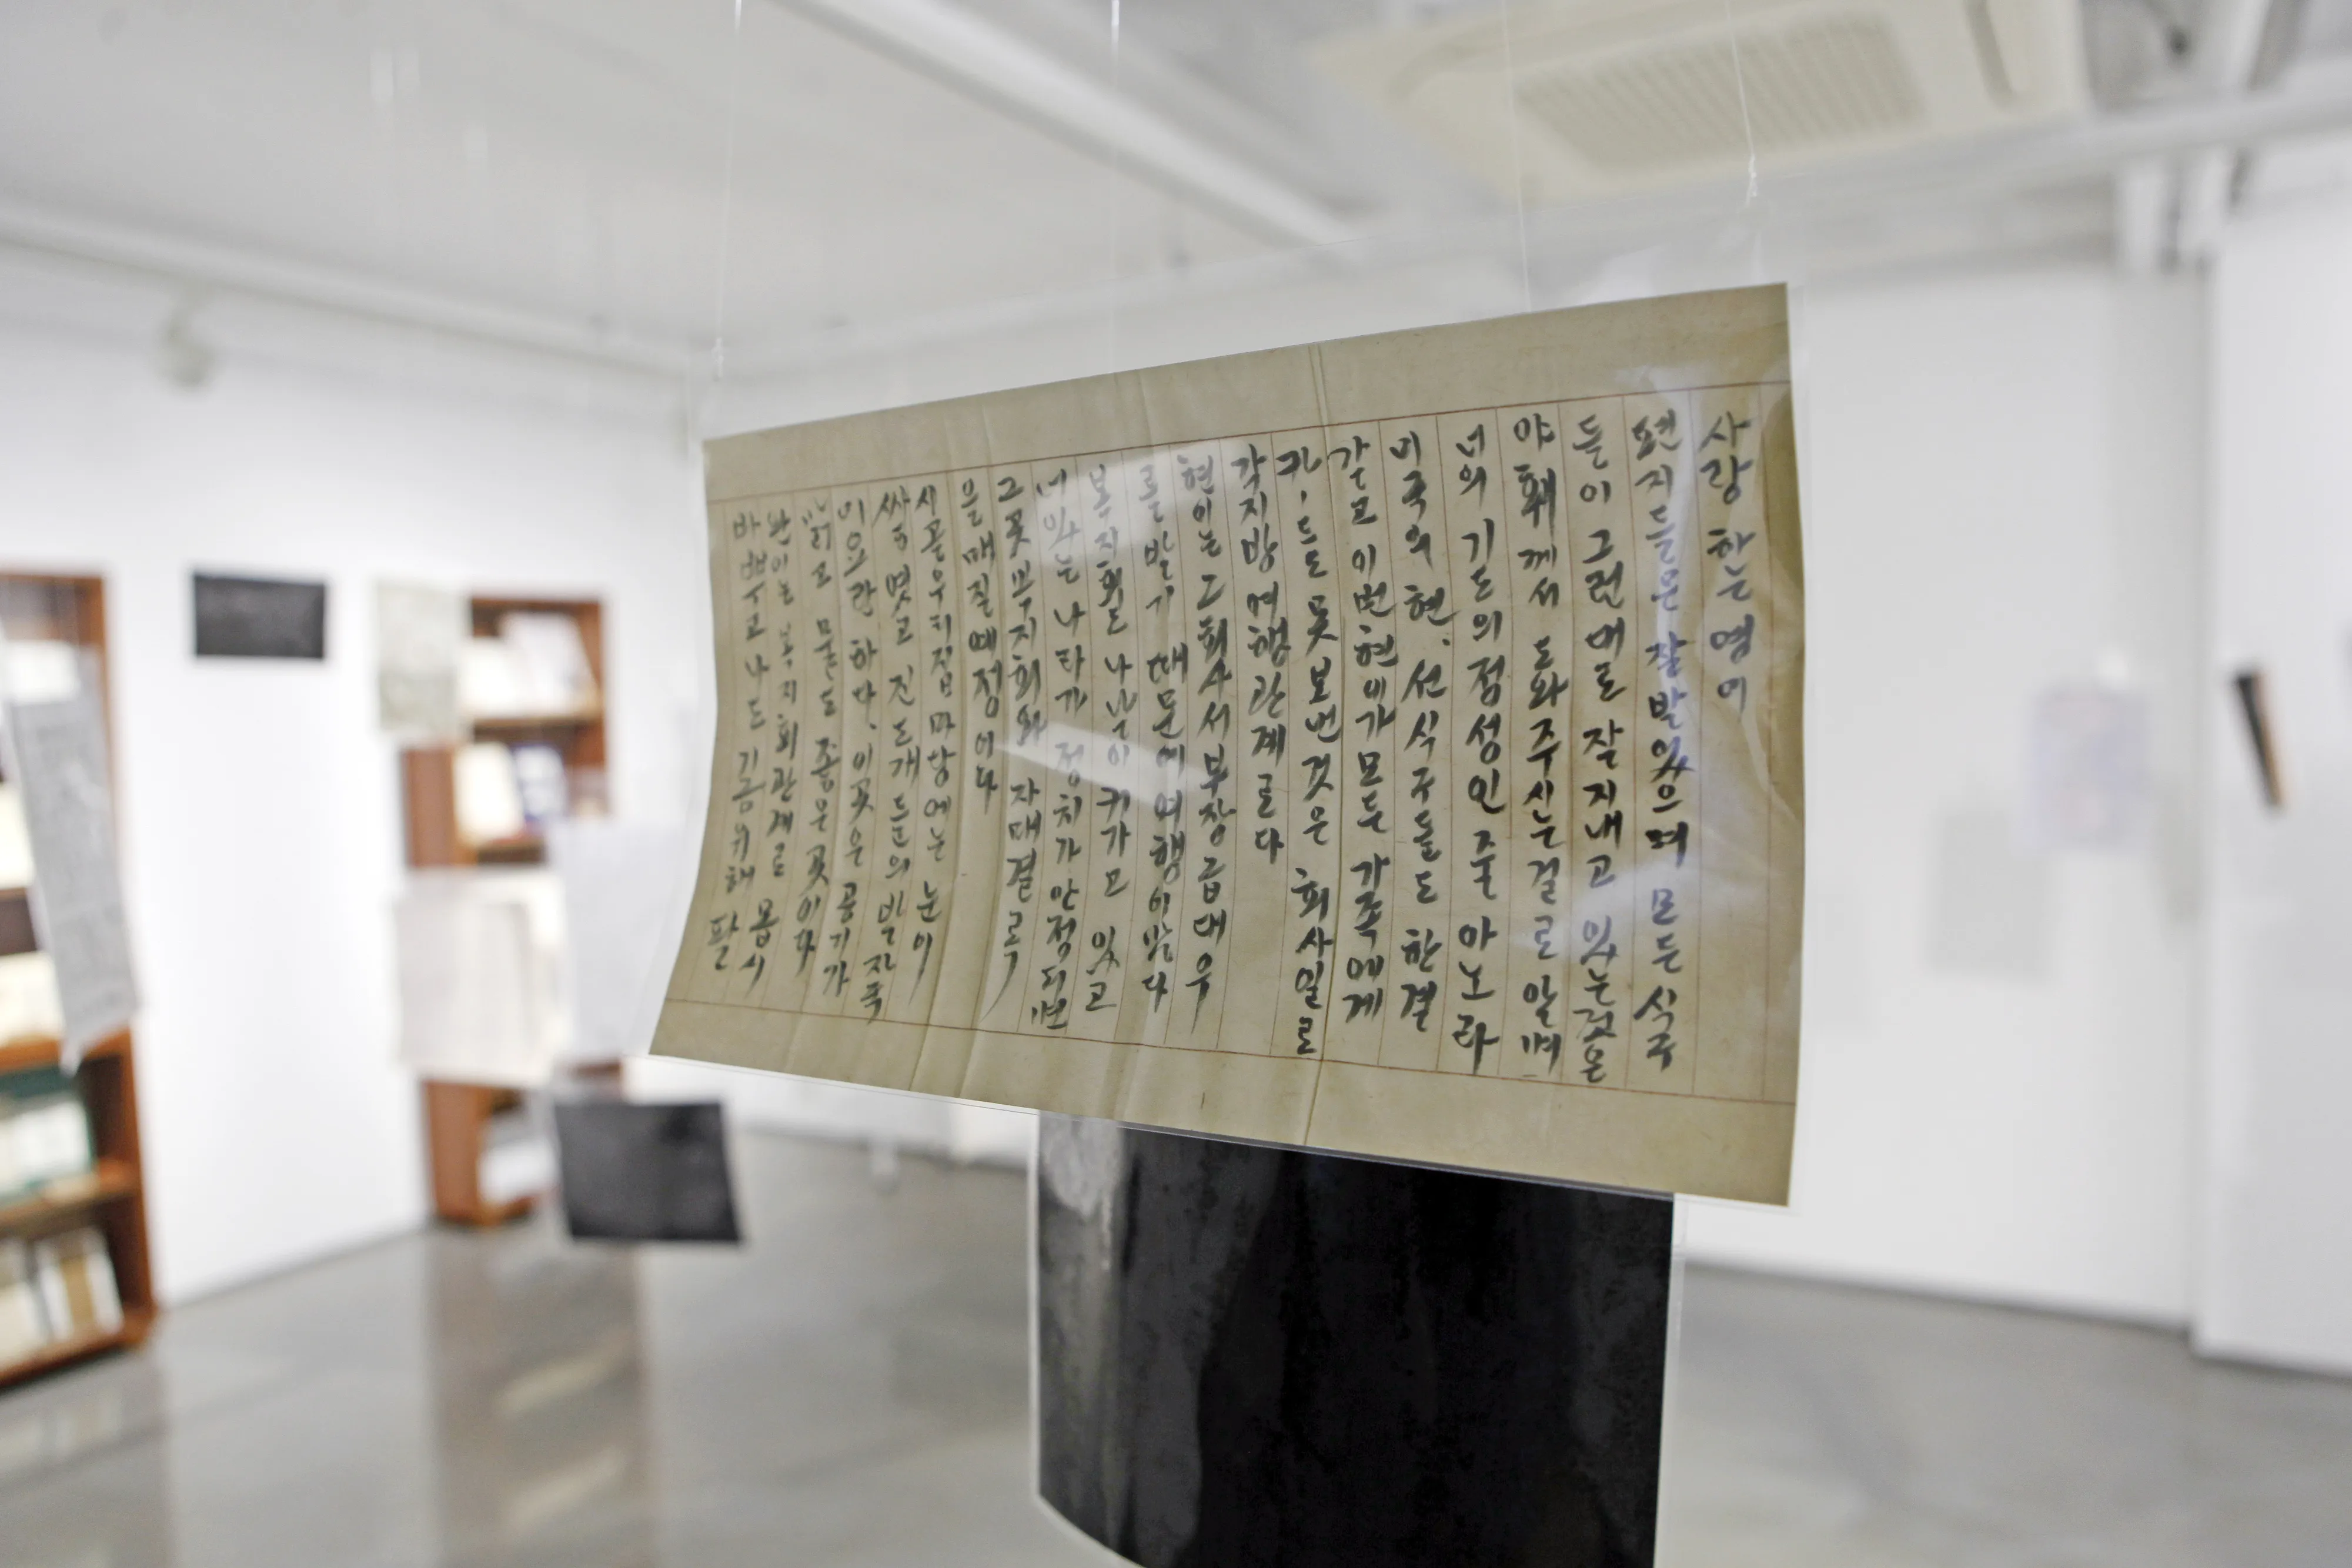 사랑하는 영이
편지들은 잘 받았으며 모든 식구
들이 그런대로 잘 지내고 있는것은
야훼께서 도와주시는걸로 알며
너의 기도의 정성인 줄 아노라
미국의 현. 선 식구들도 한결
같고 이번 현애가 모든 가족에게
각지방 여행관계로다
현이는 그 회사서 부장급 대우
를 받기 때문에 여행이 많다
복지회도 나날이 커가고 있고
너 있는 나라가 정치가 안정되면
그곳 쁘지회와 자매결로
을 매질 예정이다
시골 우리집 마당에는 눈이
싸여 멎고 진도개들의 발자욱
미요란하다. 이곳은 공기가
맑고 물도 좋은 곳이다
완이는 복지회 관계로 몹시
바쁘고 나도 김 위해